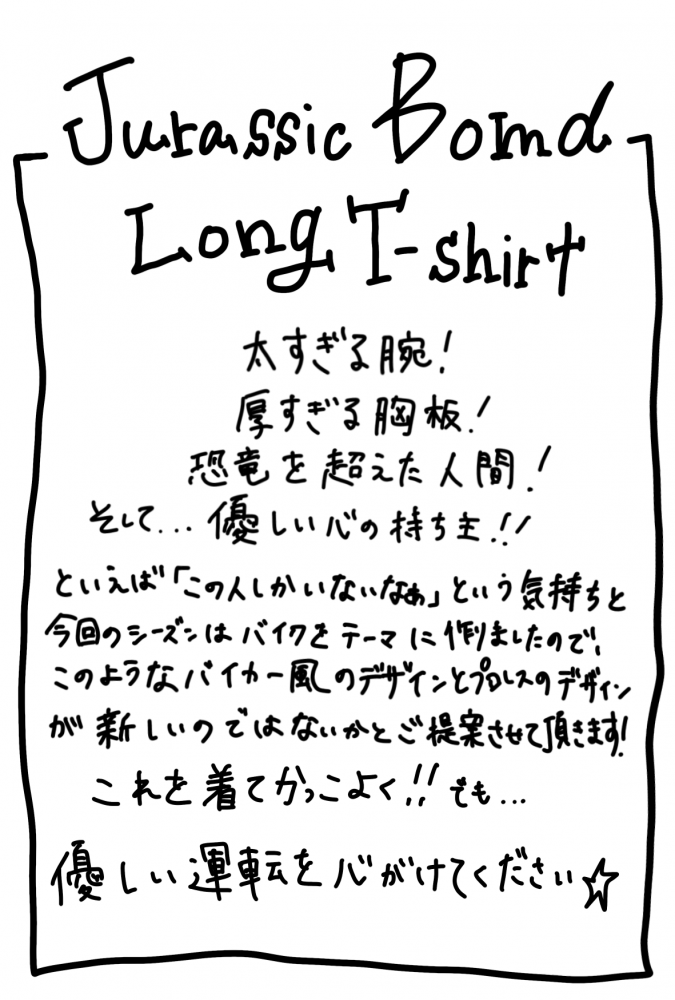 Jurassic Bomd
Long T-shirt
太すぎる腕!
厚すぎる胸板!
恐竜を超えた人間!
そして...優しい心の持ち主!!
といえば「この人しかいないなぁ」という気持ちと
今回のシーズンはバイクをテーマに作りましたので、
このようなバイカー風のデザインとプロレスのデザイン
が新しいのではないかとご提案させて頂きます!
これを着てかっこよく!!でも...
優しい運転を心がけてください☆